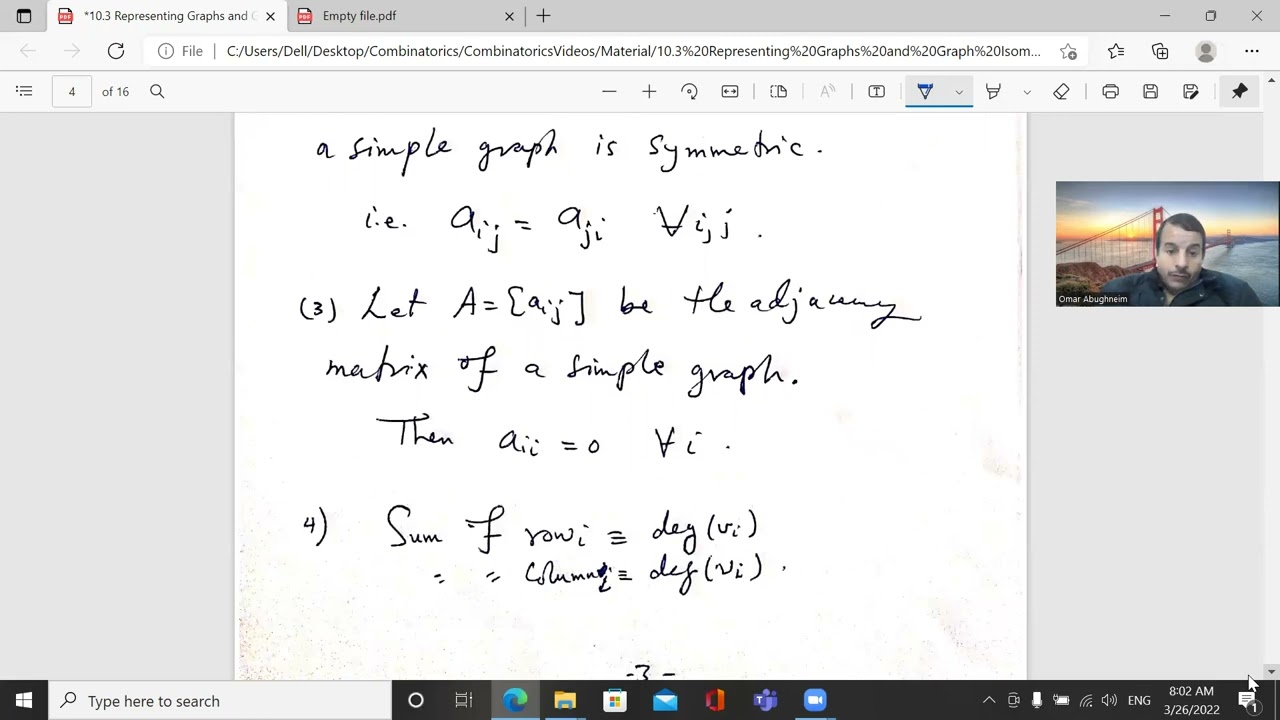 *10.3 Representing Graphs and G
Empty file.pdf
File
C:/Users/Dell/Desktop/Combinatorics/CombinatoricsVideos/Material/10.3%20Representing%20Graphs%20and%20Graph%20Isom...
4 of 16
a simple graph is symmetric.
i.e. aij = aji ∀ i,j .
(3) Let A=[aij] be the adjacency
matrix of a simple graph.
Then aii = 0 ∀ i .
4) Sum of row i ≡ deg(vi)
= = column i ≡ deg(vi) .
-3-
Omar Abugheim
Type here to search
ENG
8:02 AM
3/26/2022
1